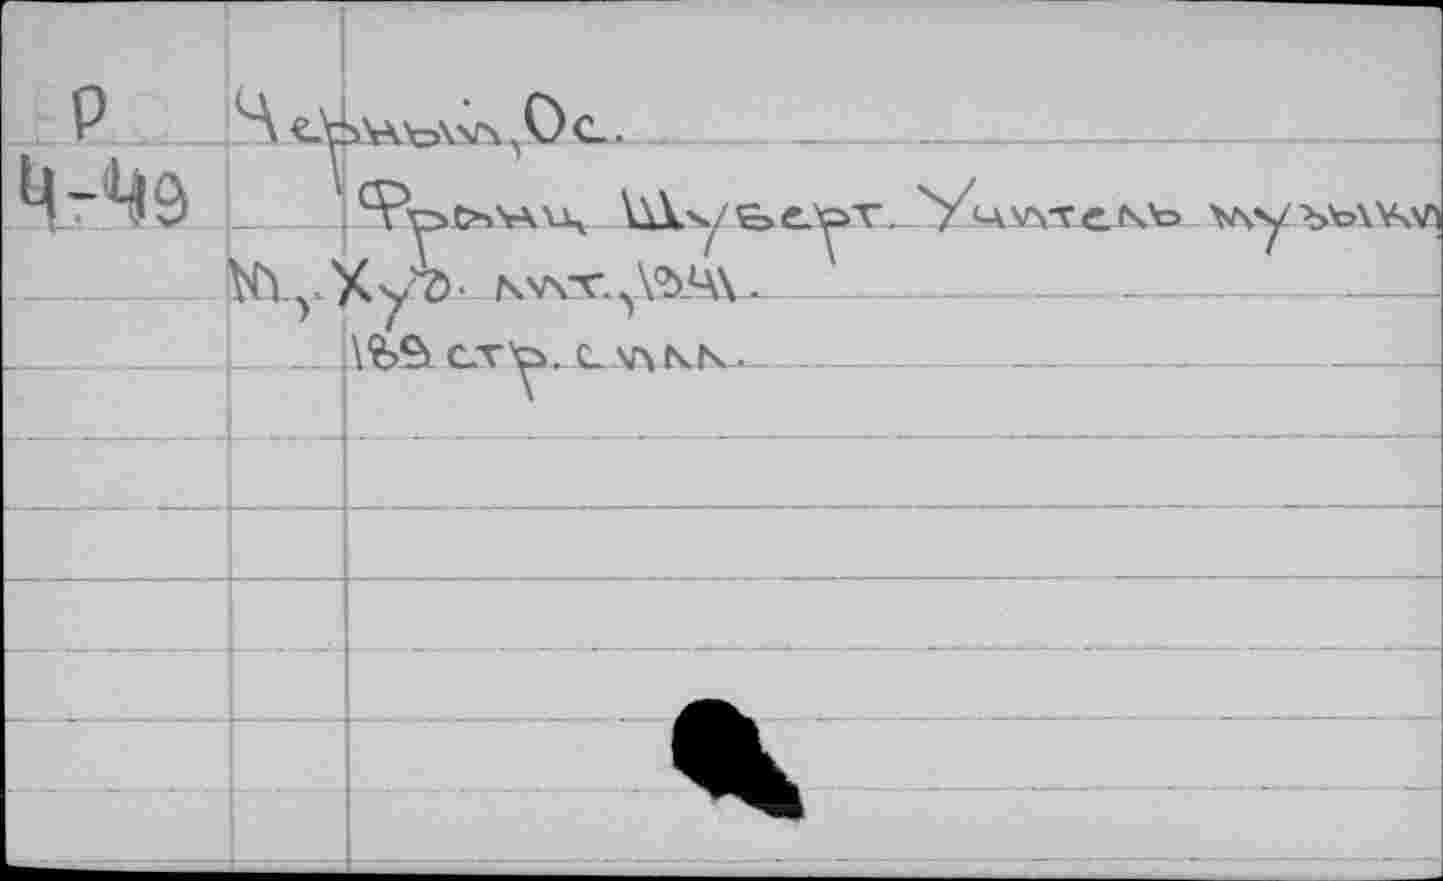 Р Черный, Ос.
Ч-49 Франц Шуберт. Учитель музыки
М., Худ. лит., 1941.
стр. с илл.